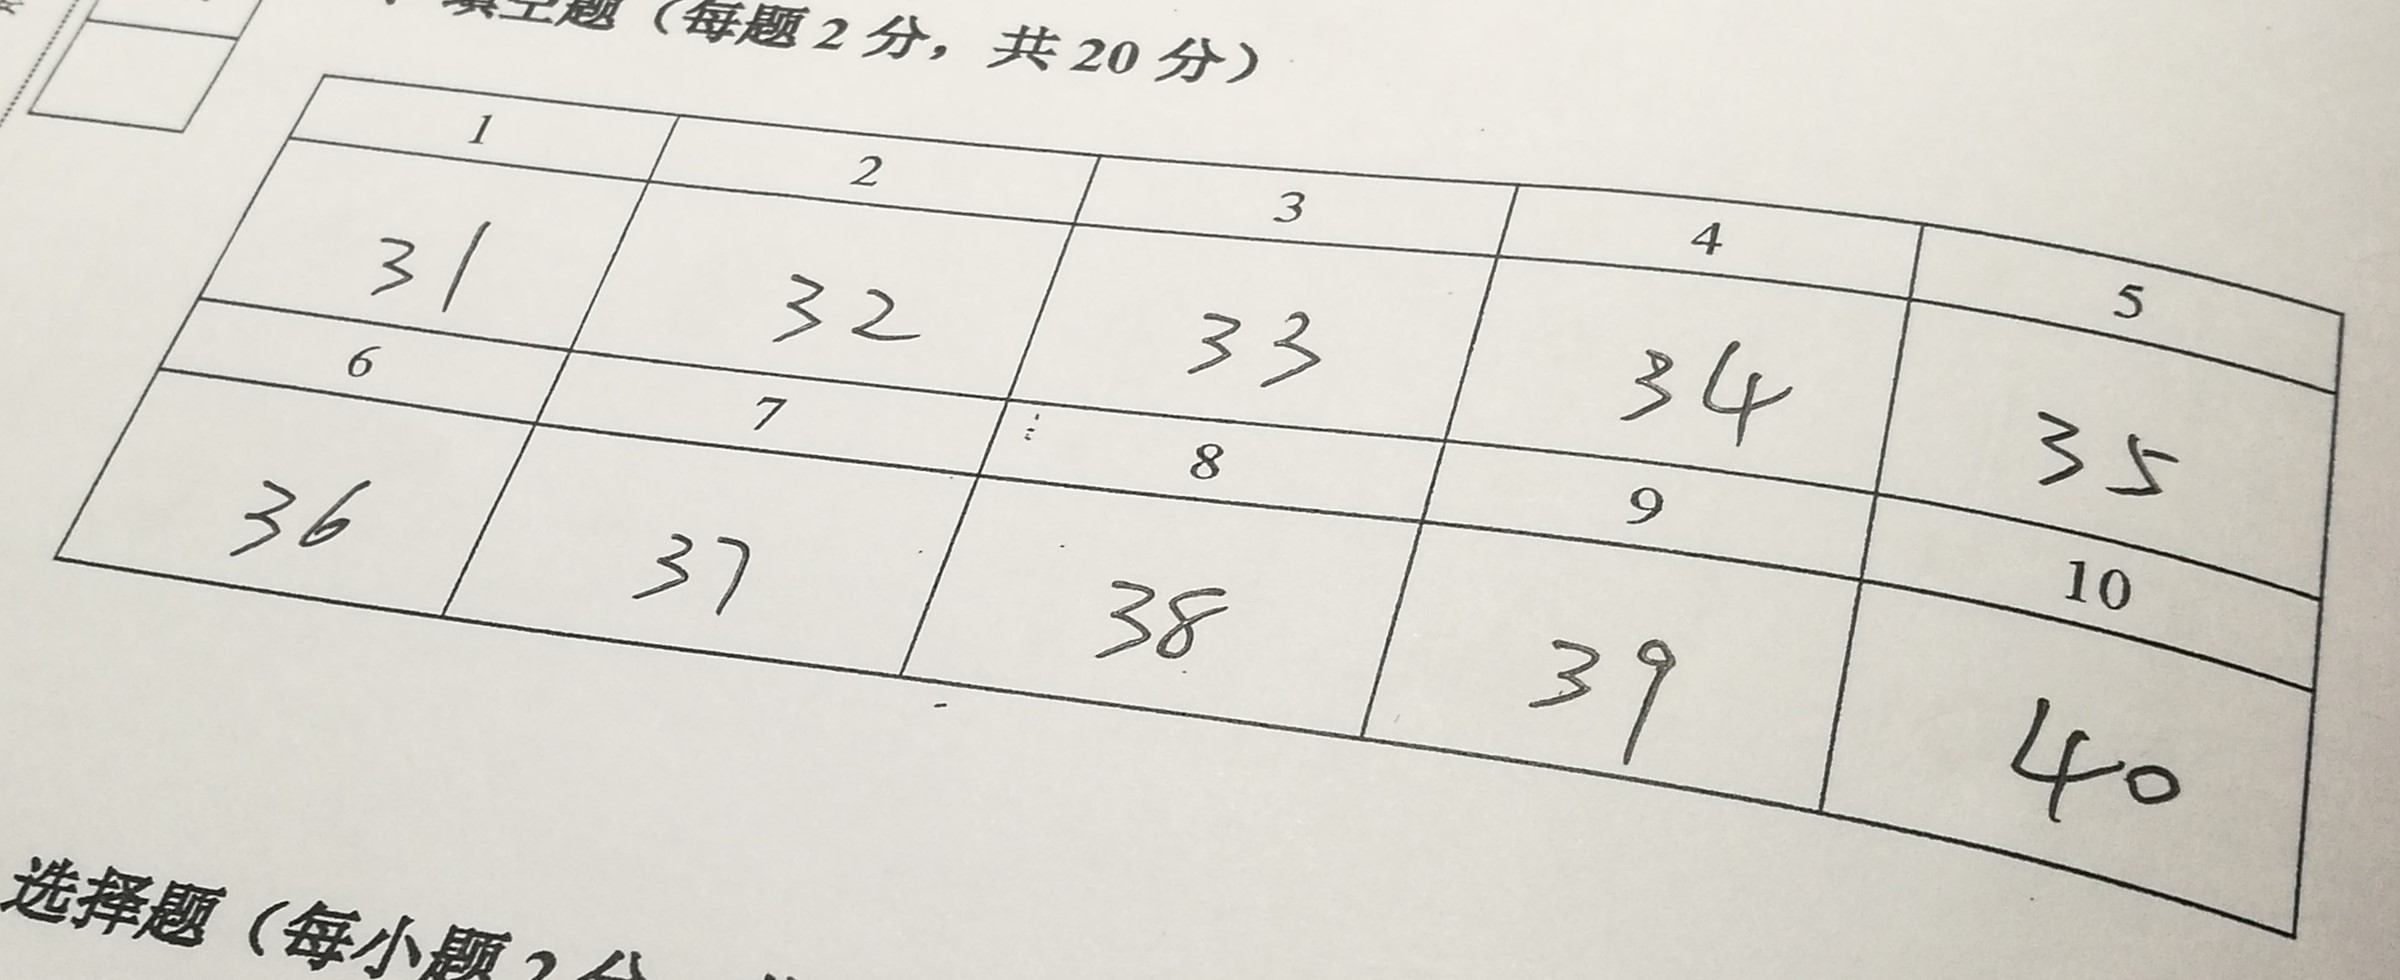 填空题（每题 2 分，共 20 分）
1 2 3 4 5
31 32 33 34 35
6 7 8 9 10
36 37 38 39 40
选择题（每小题 2 分